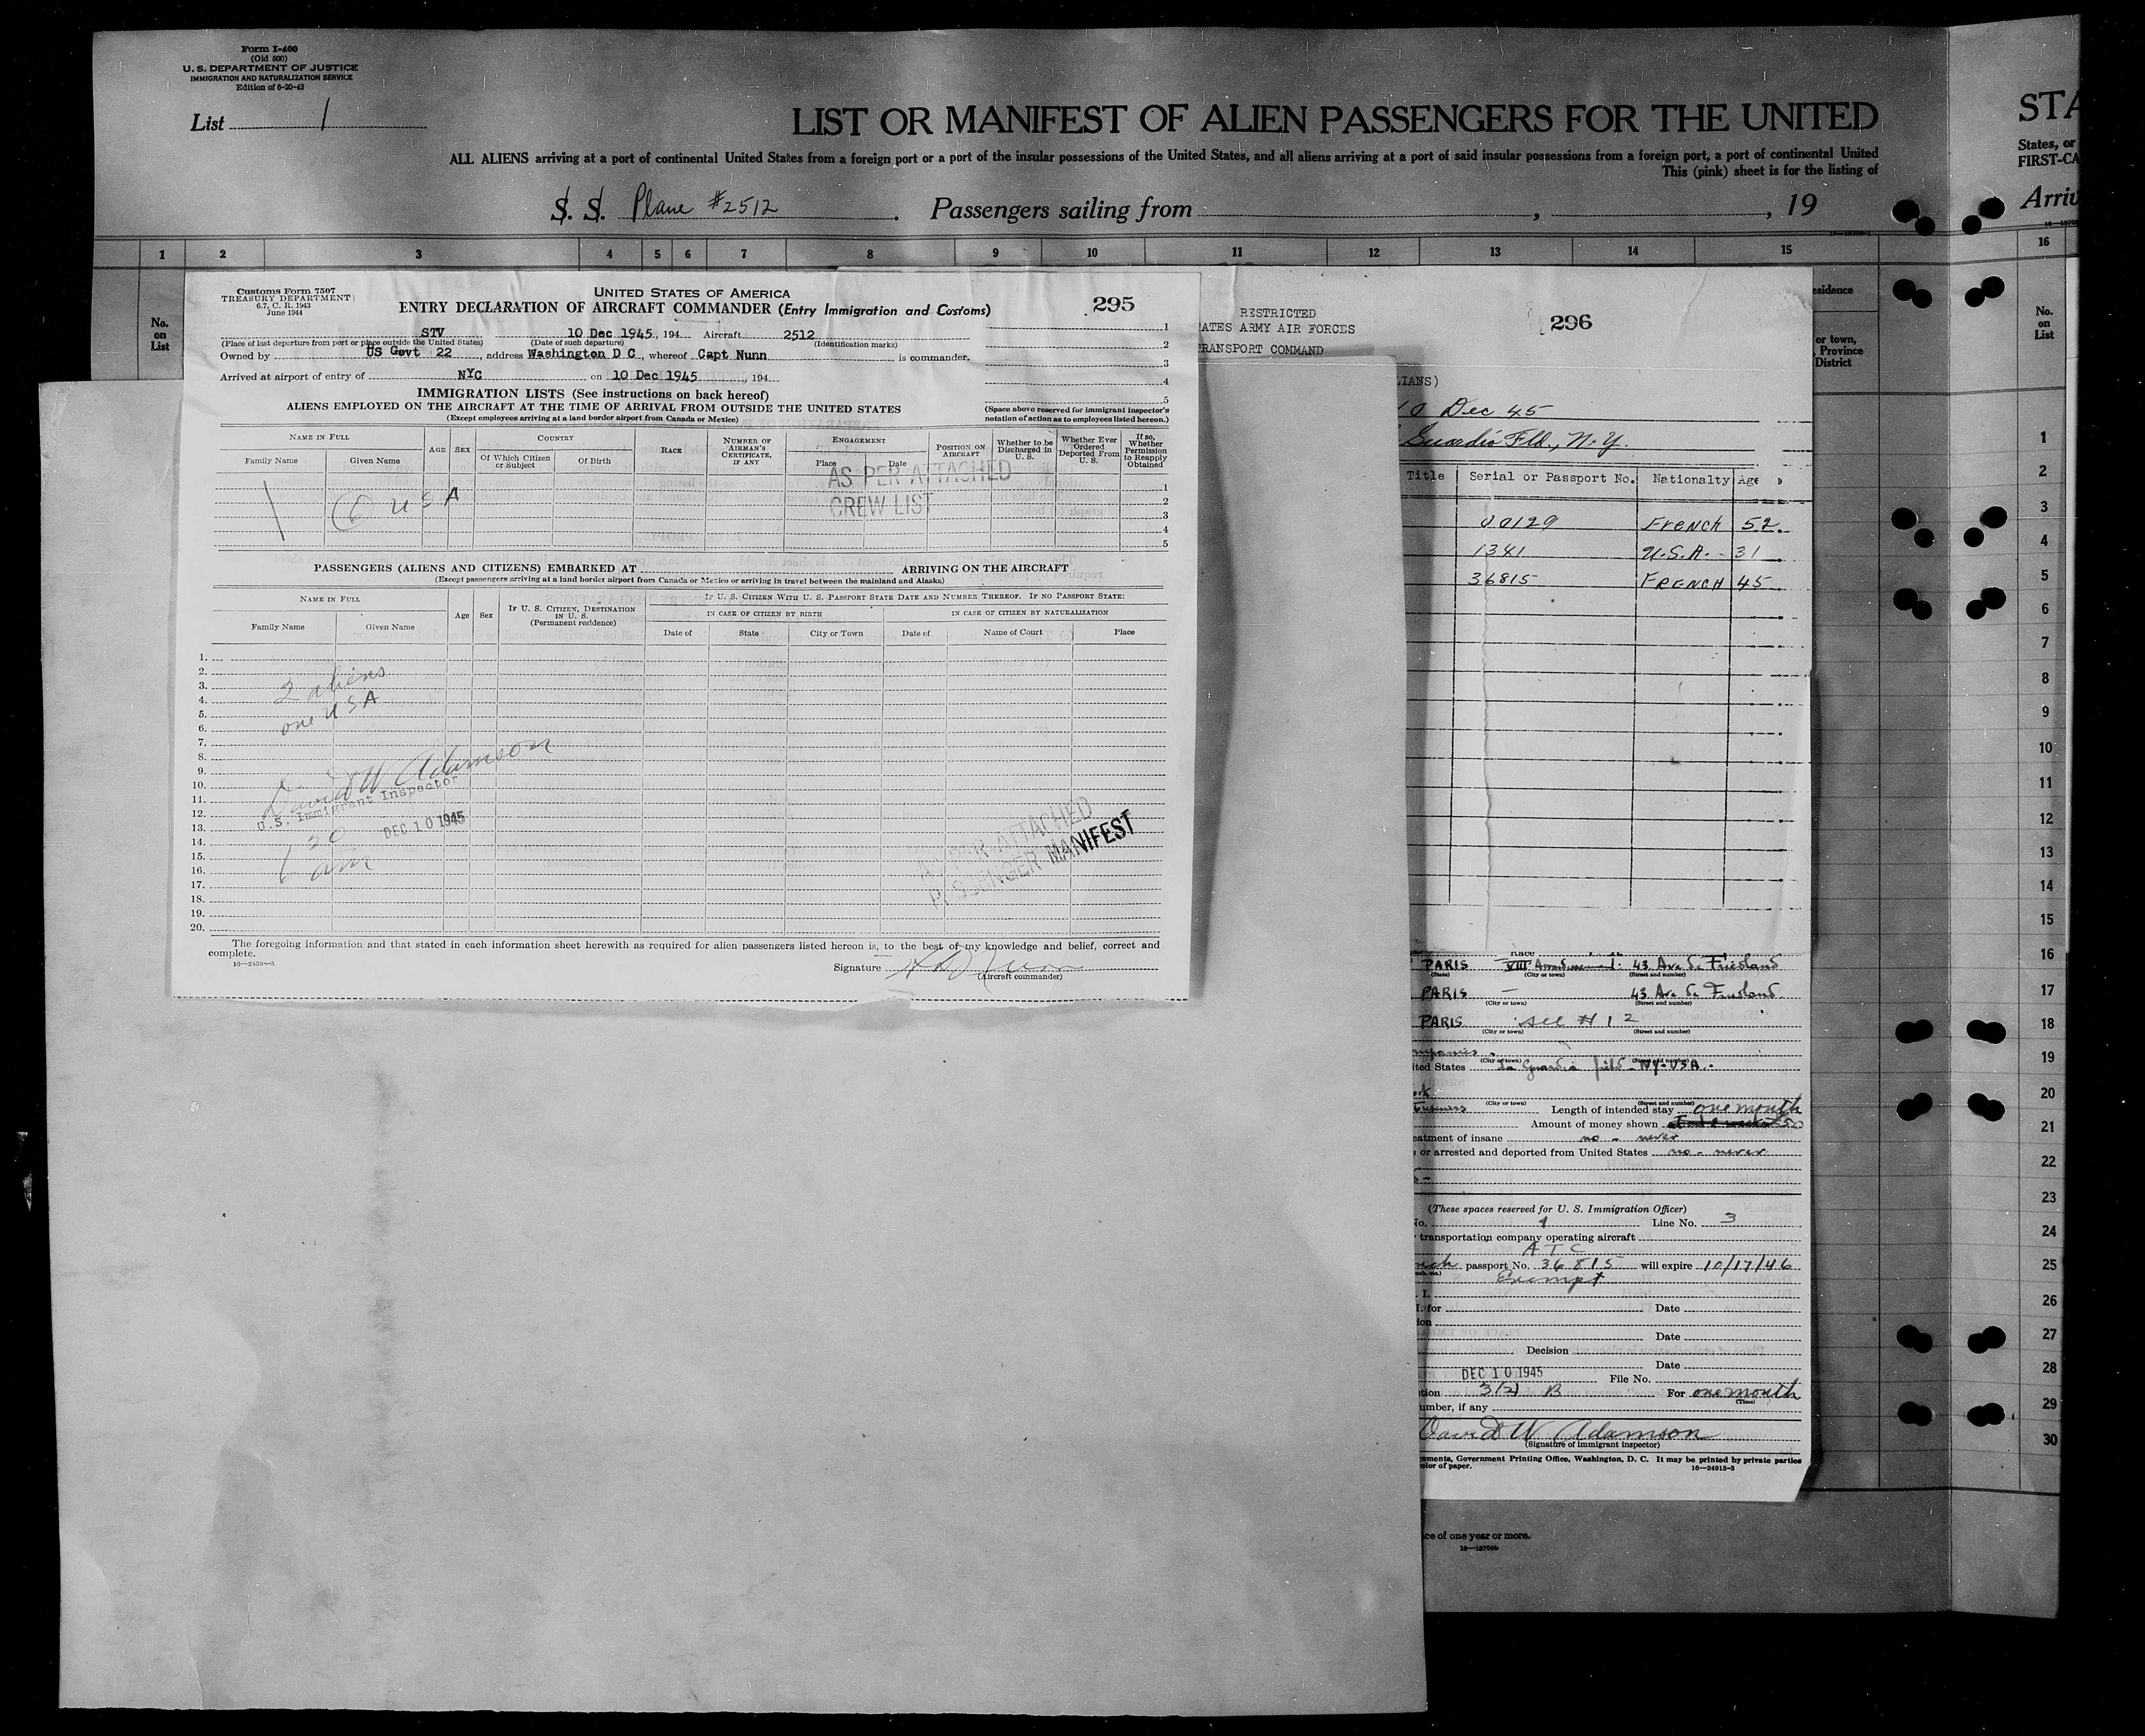 Form I-400
(Old 500)
U. S. DEPARTMENT OF JUSTICE
IMMIGRATION AND NATURALIZATION SERVICE
Edition of 6-20-42
List 1
LIST OR MANIFEST OF ALIEN PASSENGERS FOR THE UNITED
ALL ALIENS arriving at a port of continental United States from a foreign port or a port of the insular possessions of the United States, and all aliens arriving at a port of said insular possessions from a foreign port, a port of continental United
This (pink) sheet is for the listing of
S. S. Plane #2512. Passengers sailing from , , 19
1 2 3 4 5 6 7 8 9 10 11 12 13 14 15
No. on List
Customs Form 7507
TREASURY DEPARTMENT
6.7, C. R. 1943
June 1944
UNITED STATES OF AMERICA
ENTRY DECLARATION OF AIRCRAFT COMMANDER (Entry Immigration and Customs)
295
STV 10 Dec 1945, 194 Aircraft 2512
(Place of last departure from port or place outside the United States) (Date of such departure) (Identification marks)
Owned by US Govt 22, address Washington D C, whereof Capt Nunn is commander.
Arrived at airport of entry of NYC on 10 Dec 1945, 194
1
2
3
4
5
IMMIGRATION LISTS (See instructions on back hereof)
ALIENS EMPLOYED ON THE AIRCRAFT AT THE TIME OF ARRIVAL FROM OUTSIDE THE UNITED STATES
(Except employees arriving at a land border airport from Canada or Mexico)
(Space above reserved for immigrant inspector's notation of action as to employees listed hereon.)
NAME IN FULL
Family Name Given Name
AGE SEX
COUNTRY
Of Which Citizen or Subject Of Birth
RACE
NUMBER OF AIRMAN'S CERTIFICATE, IF ANY
ENGAGEMENT
Place Date
POSITION ON AIRCRAFT
Whether to be Discharged in U. S.
Whether Ever Ordered Deported From U. S.
If so, Whether Permission to Reapply Obtained
AS PER ATTACHED
CREW LIST
6 U S A
1
2
3
4
5
PASSENGERS (ALIENS AND CITIZENS) EMBARKED AT ARRIVING ON THE AIRCRAFT
(Except passengers arriving at a land border airport from Canada or Mexico or arriving in travel between the mainland and Alaska)
NAME IN FULL
Family Name Given Name
Age Sex
IF U. S. CITIZEN, DESTINATION IN U. S.
(Permanent residence)
IF U. S. CITIZEN WITH U. S. PASSPORT STATE DATE AND NUMBER THEREOF. IF NO PASSPORT STATE:
IN CASE OF CITIZEN BY BIRTH IN CASE OF CITIZEN BY NATURALIZATION
Date of State City or Town Date of Name of Court Place
1.
2.
3.
4.
5.
6.
7.
8.
9.
10.
11.
12.
13.
14.
15.
16.
17.
18.
19.
20.
2 aliens
one USA
David W Adamson
U.S. Immigrant Inspector
DEC 10 1945
30
am
AS PER ATTACHED
PASSENGER MANIFEST
The foregoing information and that stated in each information sheet herewith as required for alien passengers listed hereon is, to the best of my knowledge and belief, correct and
complete.
16—24598-3
Signature
(Aircraft commander)
RESTRICTED
296
ATES ARMY AIR FORCES
RANSPORT COMMAND
LIANS)
10 Dec 45
Guardia Fld., N.Y.
Title Serial or Passport No. Nationalty Age
00129 French 52
1341 U.S.A. 31
36815 FRENCH 45
PARIS VIII 43 Ave de Friedland
(State) (City or town) (Street and number)
PARIS — 43 Ave de Friedland
(City or town) (Street and number)
PARIS see # 12
(City or town) (Street and number)
mpanies
(City or town) (Street and number)
ited States La Guardia field - NY-USA.
(City or town) (Street and number)
business Length of intended stay one month
Amount of money shown
eatment of insane no - never
or arrested and deported from United States no - never
(These spaces reserved for U. S. Immigration Officer)
No. 1 Line No. 3
transportation company operating aircraft
ATC
nch passport No. 36815 will expire 10/17/46
Exempt
I.
I. for Date
ion
Date
Decision
Date
DEC 10 1945 File No.
tion 3(2) B For one month
(Time)
umber, if any
David W Adamson
(Signature of immigrant inspector)
uments, Government Printing Office, Washington, D. C. It may be printed by private parties
olor of paper. 16—24915-3
ce of one year or more.
16—18709b
esidence
or town,
Province
District
STA
States, or
FIRST-CA
Arriv
16
No. on List
1
2
3
4
5
6
7
8
9
10
11
12
13
14
15
16
17
18
19
20
21
22
23
24
25
26
27
28
29
30